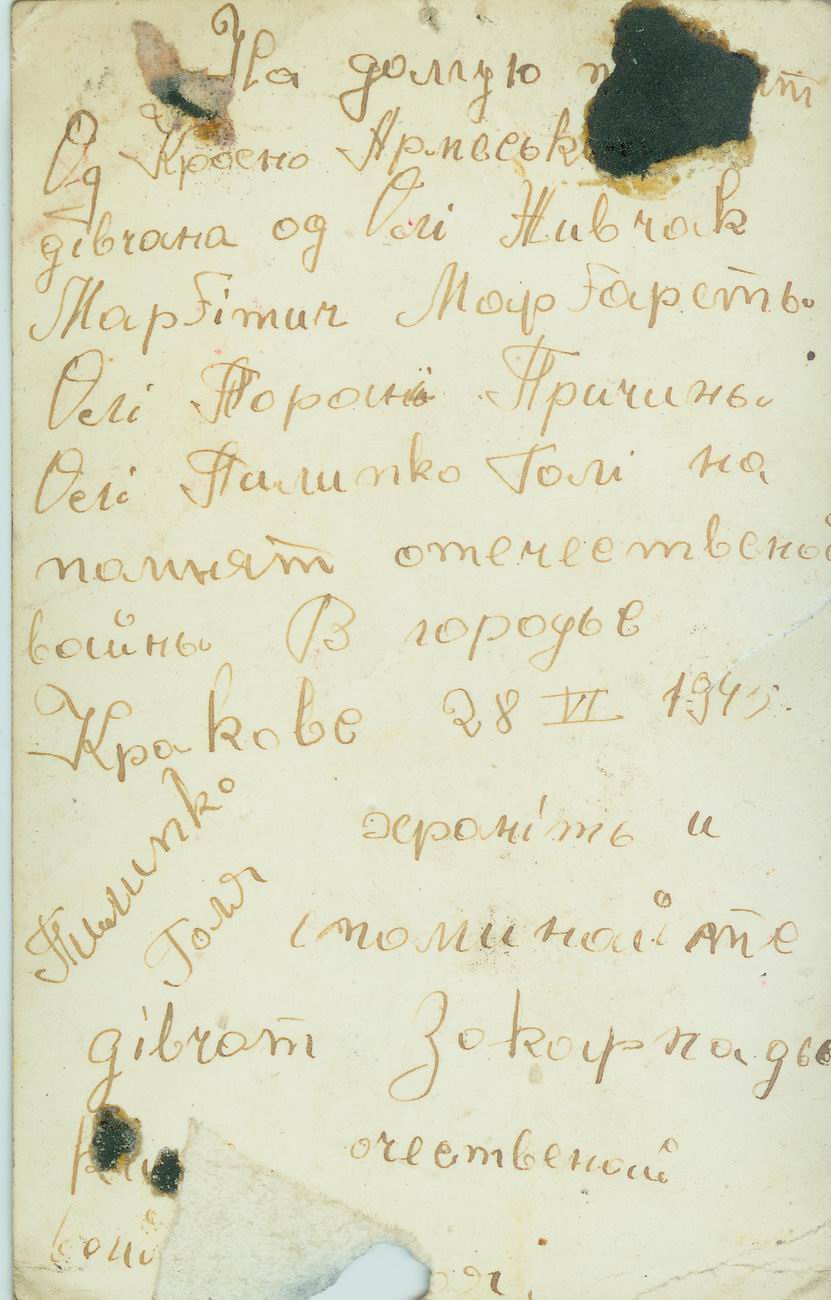 На долгую
Од Кросно Армеськ
дівчана од Олі Живчак
Марґітич Марґареть
Олі Торані Причинь
Олі Пилипко Голі на
памнят отечествено
вайнь В городье
Кракове 28 VI 1945
Пилипко
Голя
храніть и
споминайте
дівчат Закарпадь
очественой